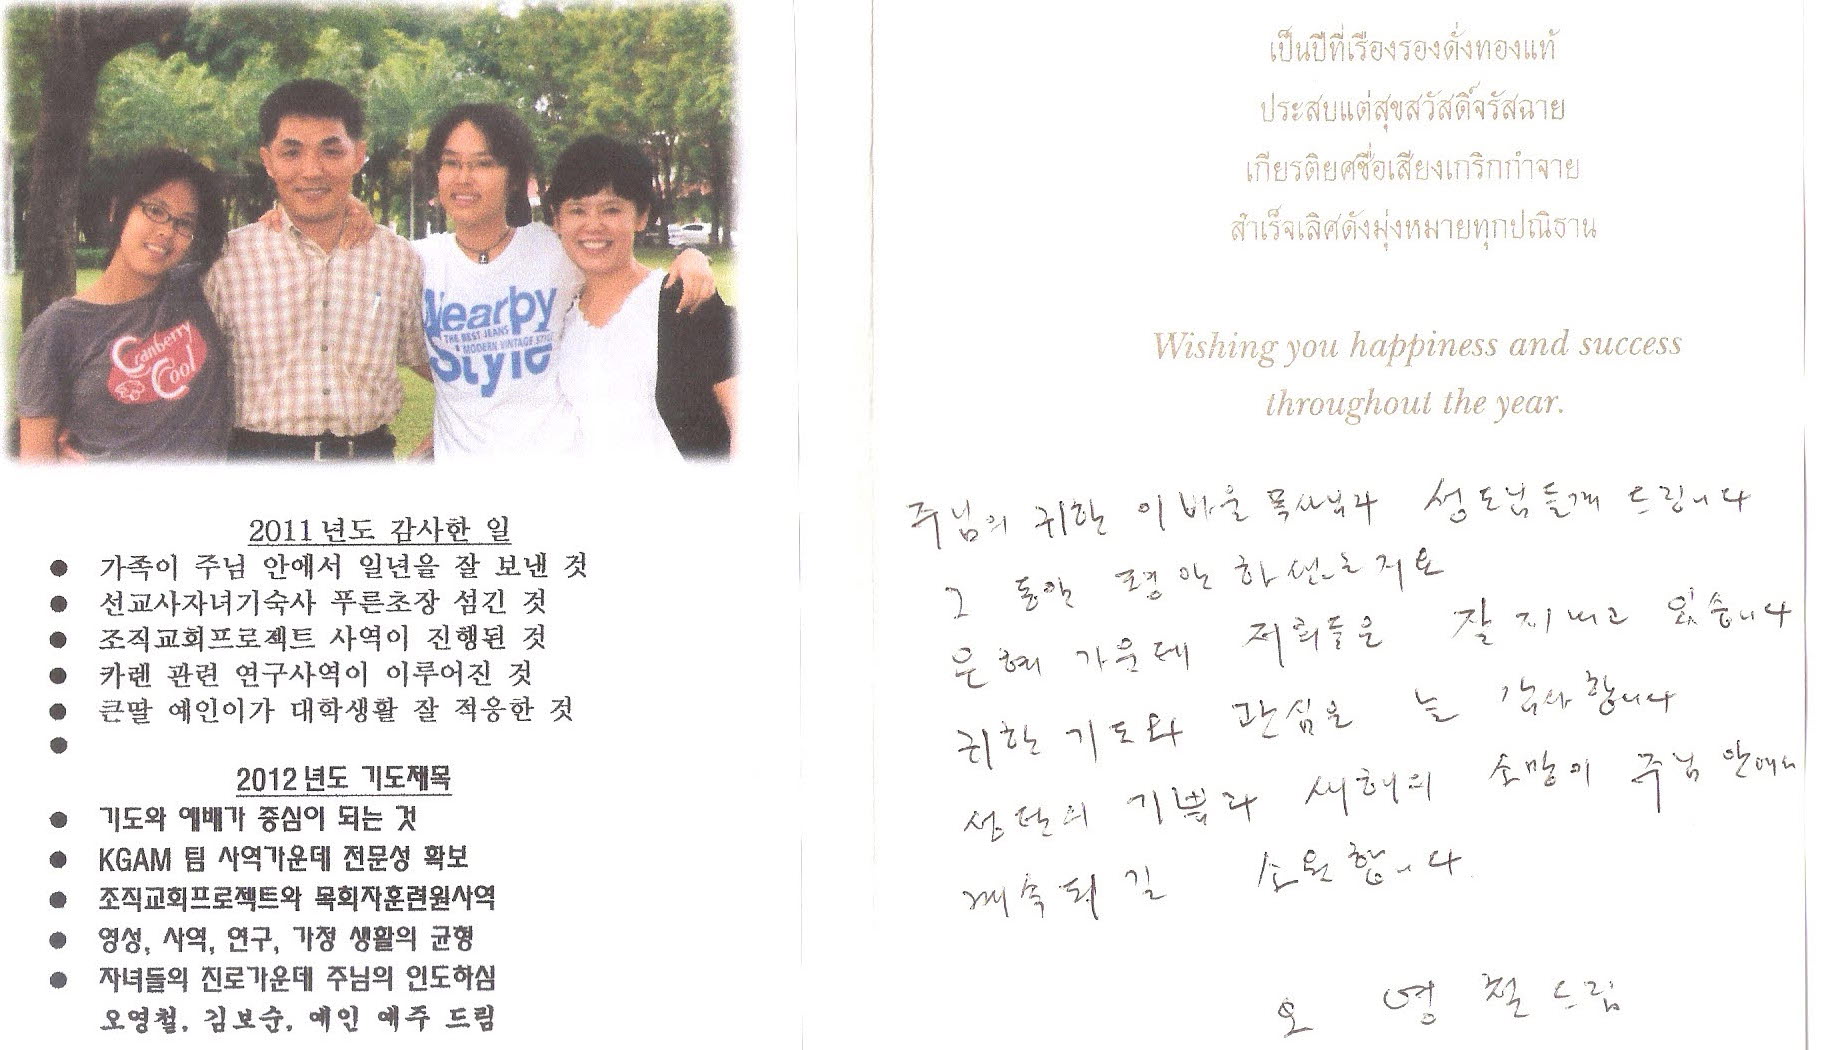 Cranberry
Cool
Nearby
THE BEST JEANS
MODERN VINTAGE STYLE
Style
2011년도 감사한 일
● 가족이 주님 안에서 일년을 잘 보낸 것
● 선교사자녀기숙사 푸른초장 섬긴 것
● 조직교회프로젝트 사역이 진행된 것
● 카렌 관련 연구사역이 이루어진 것
● 큰딸 예인이가 대학생활 잘 적응한 것
●
2012년도 기도제목
● 기도와 예배가 중심이 되는 것
● KGAM 팀 사역가운데 전문성 확보
● 조직교회프로젝트와 목회자훈련원사역
● 영성, 사역, 연구, 가정 생활의 균형
● 자녀들의 진로가운데 주님의 인도하심
오영철, 김보순, 예인 예주 드림
เป็นปีที่เรืองรองดั่งทองแท้
ประสบแต่สุขสวัสดิ์จรัสฉาย
เกียรติยศชื่อเสียงเกริกกำจาย
สำเร็จเลิศดังมุ่งหมายทุกปณิธาน
Wishing you happiness and success
throughout the year.
주님의 귀한 이바울 목사님과 성도님들께 드립니다
그 동안 평안하셨는지요
은혜 가운데 저희들은 잘 지내고 있습니다
귀한 기도와 관심을 늘 감사합니다
성탄의 기쁨과 새해의 소망이 주님 안에서
계속되길 소원합니다.
오 영 철 드림